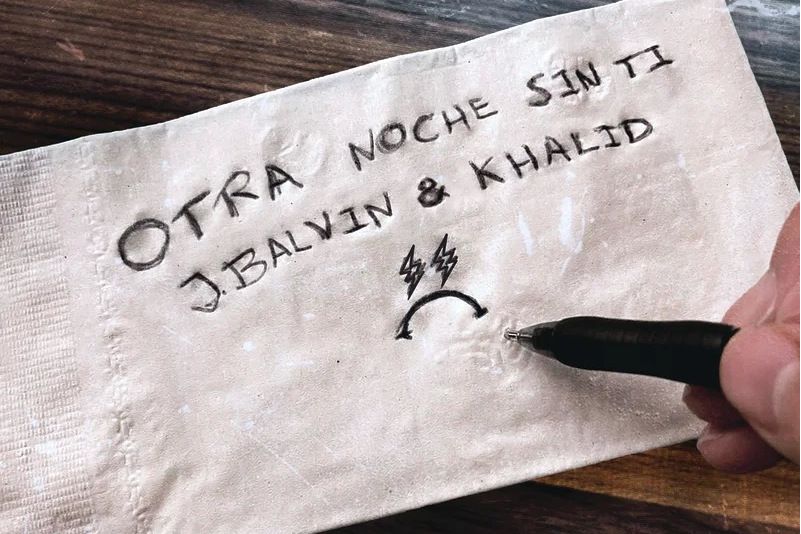 OTRA NOCHE SIN TI
J.BALVIN & KHALID